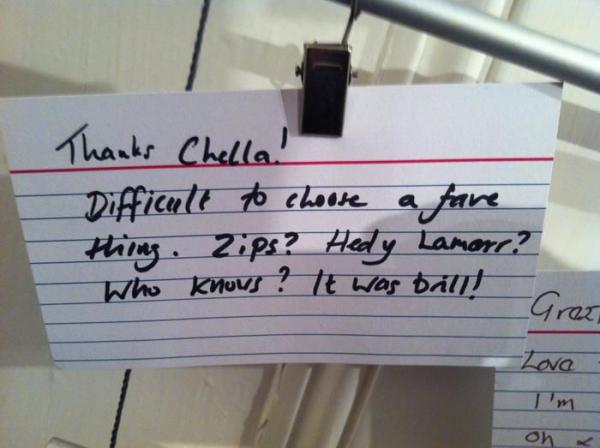 Thanks Chella!
Difficult to choose a fave
thing. Zips? Hedy Lamarr?
Who knows? It was brill!
Love
I'm
on